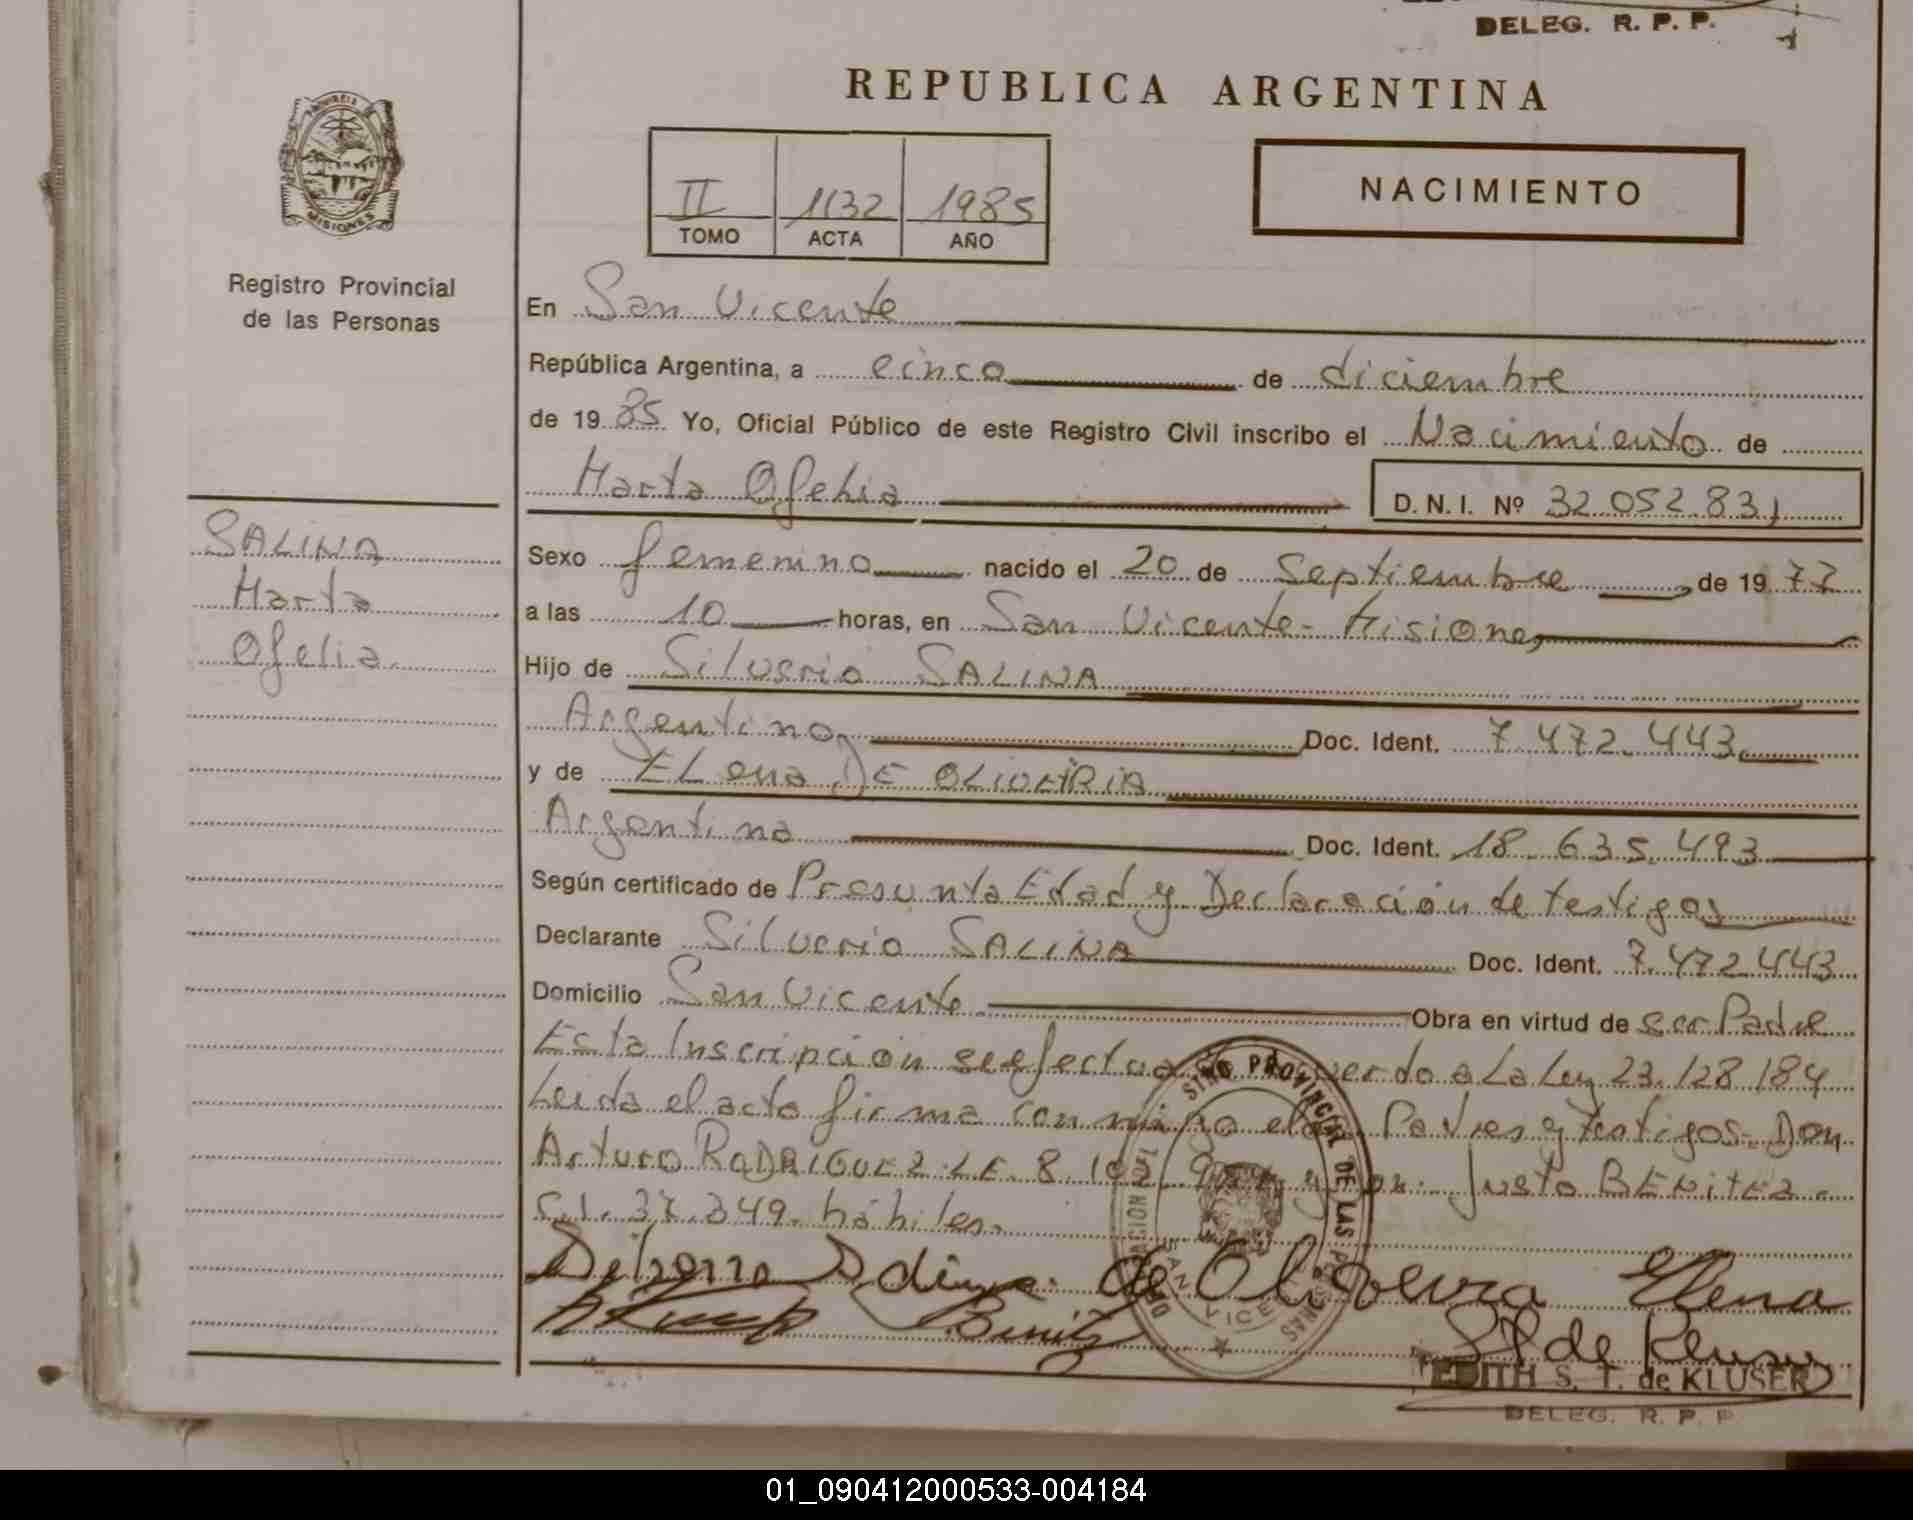 DELEG. R. P. P.
REPUBLICA ARGENTINA
PROVINCIA D
MISIONES
II 1132 1985
TOMO ACTA AÑO
NACIMIENTO
Registro Provincial
de las Personas
En San Vicente
República Argentina, a cinco de diciembre
de 19 85 Yo, Oficial Público de este Registro Civil inscribo el Nacimiento de
Marta Ofelia D. N. I. Nº 32.052.831
SALINA
Marta
Ofelia
Sexo femenino nacido el 20 de Septiembre de 19 77
a las 10 horas, en San Vicente - Misiones
Hijo de Silverio SALINA
Argentino, Doc. Ident. 7.472.443
y de ELena DE OLIVEIRIA
Argentina Doc. Ident. 18.635.493
Según certificado de Presunta Edad y Declaración de testigos
Declarante Silverio SALINA Doc. Ident. 7.472.443
Domicilio San Vicente Obra en virtud de ser Padre
Esta Inscripción se efectua de acuerdo a La Ley 23.128/84
Leida el acta firma conmigo el Padres y testigos. Don
Arturo RODRIGUEZ L.E. 8. y Don Justo BENITEZ.
C.I. 37.349. hábiles.
STRO PROVINCIAL DE LAS PERSONAS
DELEGACION
SAN VICENTE
Silverio Salina. de Oliveira Elena
Benitez ST de Kluser
EDITH S. T. de KLUSER
DELEG. R. P. P
01_090412000533-004184